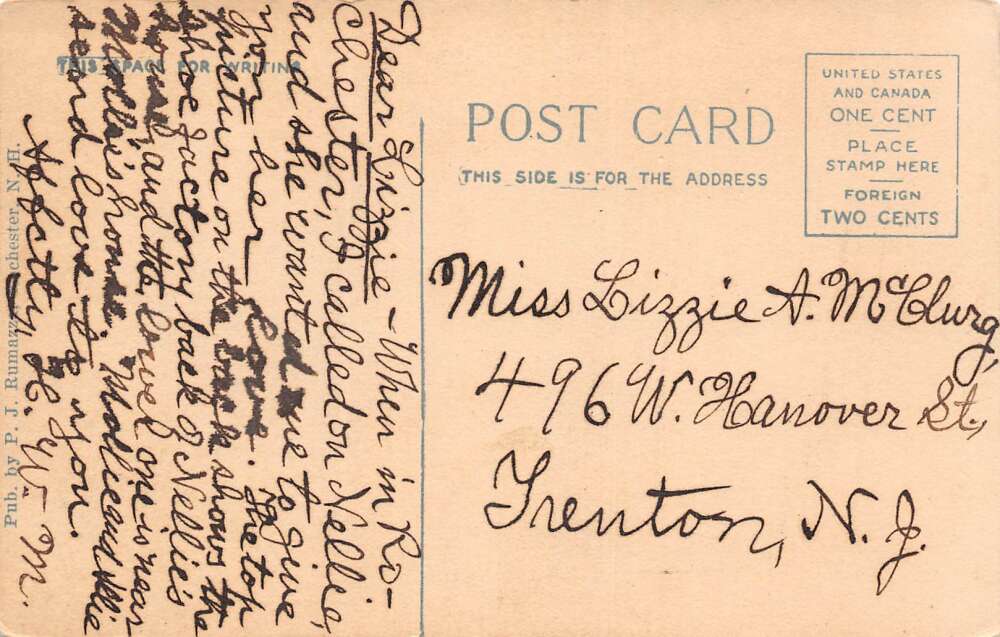 THIS SPACE FOR WRITING
Dear Lizzie - When in Ro-
chester, I called on Nellie,
and she wanted me to give
you her love. The top
picture on the back shows the
shoe factory back of Nellie's
house, and the lower one is near
Mollie's house. Mollie and Nellie
send love to you.
Affctly, H. W. M.
Pub. by P. J. Rumazz chester N. H.
POST CARD
THIS SIDE IS FOR THE ADDRESS
UNITED STATES
AND CANADA
ONE CENT
PLACE
STAMP HERE
FOREIGN
TWO CENTS
Miss Lizzie A. McClurg,
496 W. Hanover St.,
Trenton, N. J.